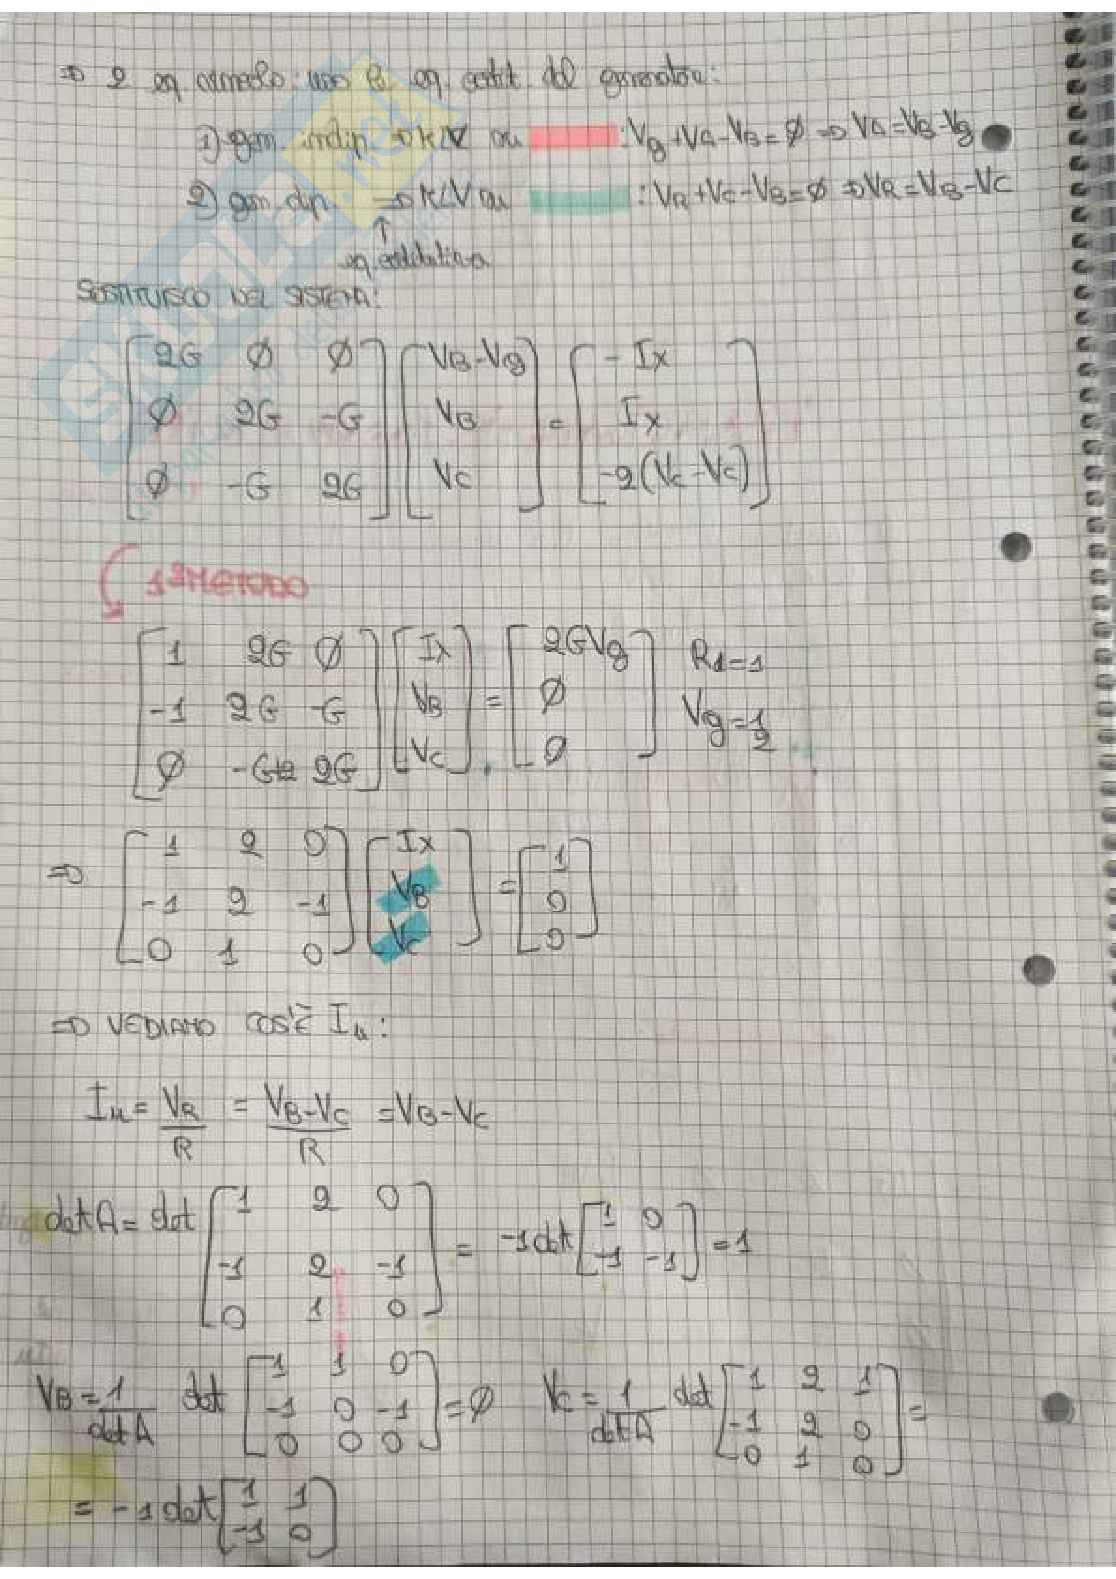 ⇒ 2 eq le eq. costit. del generatore:
1) gen indip. ⇒ KLV au : Vg + VA - VB = ∅ ⇒ VA = VB - Vg
2) gen dip. ⇒ KLV au : VR + VC - VB = ∅ ⇒ VR = VB - VC
↑
eq. costitutiva
SOSTITUISCO NEL SISTEMA:
[2G ∅ ∅] [VB-Vg] = [-Ix]
[∅ 2G -G] [VB] [Ix]
[∅ -G 2G] [VC] [-2(Vc-Vc)]
1° METODO
[1 2G ∅] [Ix] = [2GVg] R1=1
[-1 2G -G] [VB] [∅] Vg=1/2
[∅ -G+2 2G] [VC] [0]
⇒ [1 2 0] [Ix] = [1]
[-1 2 -1] [VB] [0]
[0 1 0] [VC] [0]
⇒ VEDIAMO COS'È Iu:
Iu = VR/R = (VB-VC)/R = VB - VC
det A = det [1 2 0; -1 2 -1; 0 1 0] = -1 det [1 0; -1 -1] = 1
VB = 1/det A det [1 1 0; -1 0 -1; 0 0 0] = ∅ VC = 1/det A det [1 2 1; -1 2 0; 0 1 0] =
= -1 det [1 1; -1 0]